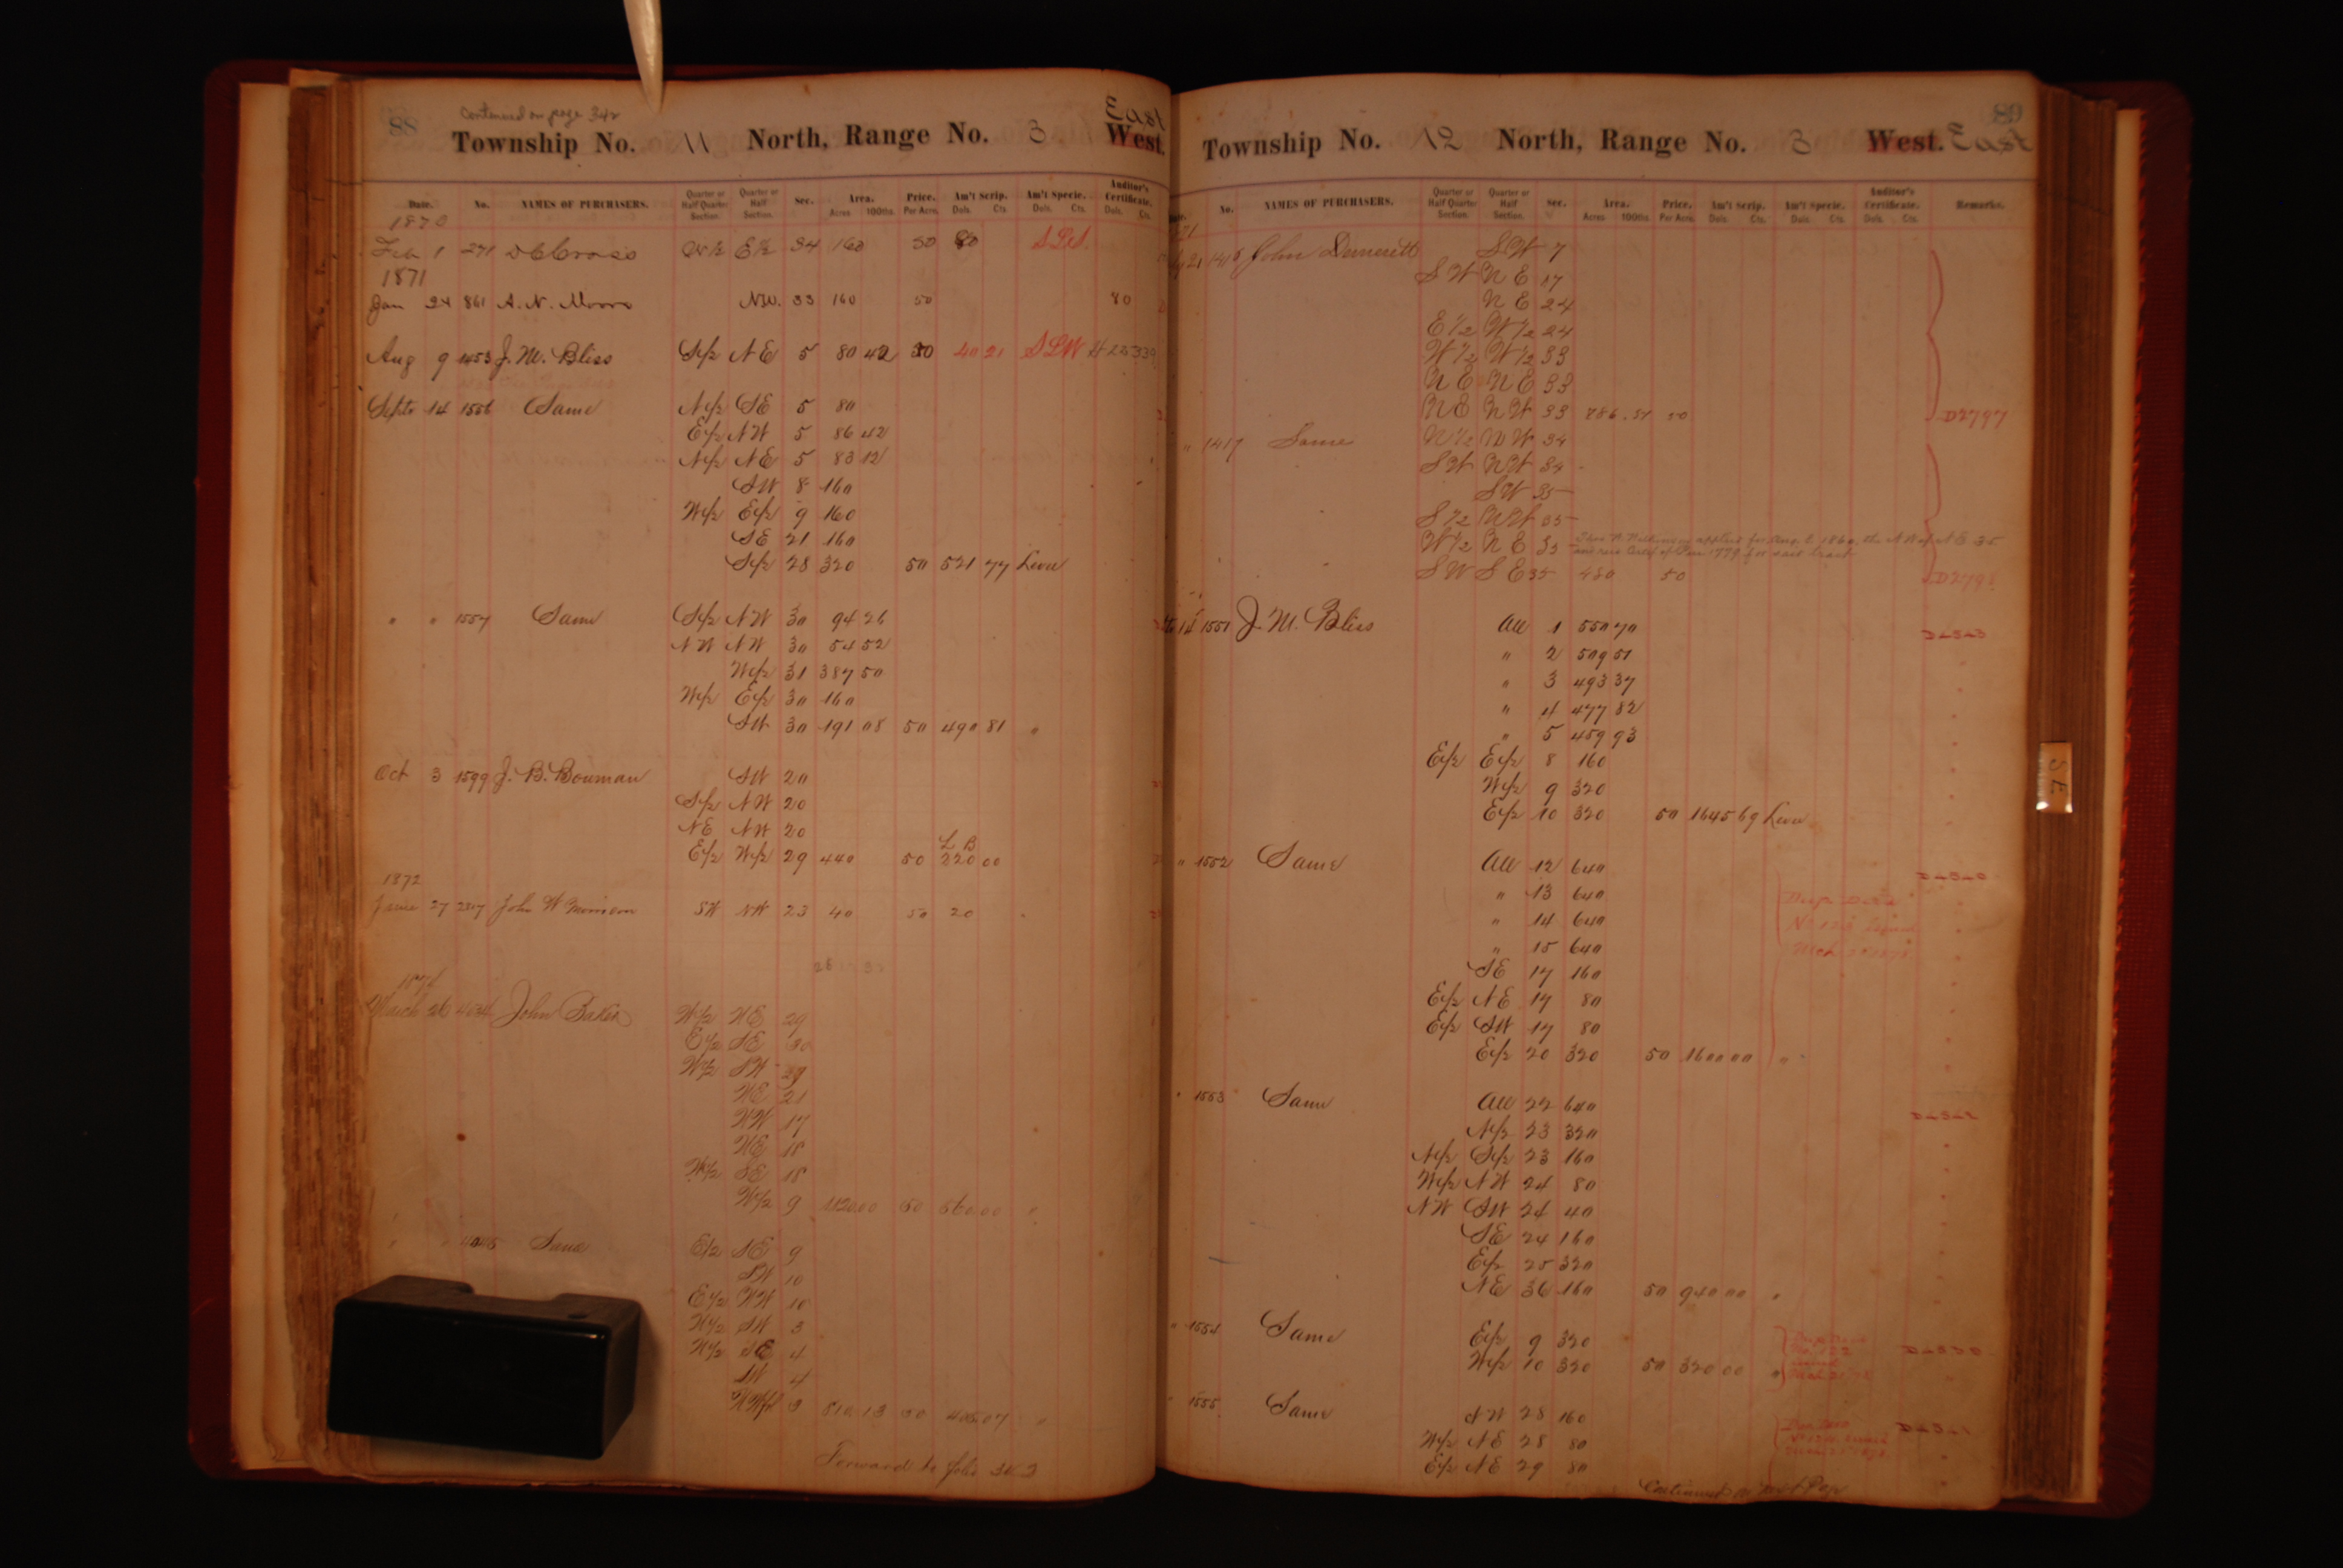 88
Continued on page 342
East
Township No. 11 North, Range No. 3 West.
Date. No. NAMES OF PURCHASERS. Quarter or Half Quarter Section. Quarter or Half Section. Sec. Area. Acres 100ths. Price. Per Acre. Am't Scrip. Dols. Cts. Am't Specie. Dols. Cts. Auditor's Certificate. Dols. Cts.
1870
Feb 1 271 W½ E½ 34 160 50 80
1871
Jan 24 861 A. N. Moore NW. 33 160 50 80
Aug 9 1453 J. M. Bliss S½ NE 5 80 42 50 40 21 SLW
Septr 14 1556 Same N½ SE 5 80
E½ NW 5 86 42
N½ NE 5 83 12
SW 8 160
W½ E½ 9 160
SE 21 160
S½ 28 320 50 521 77 Levee
" " 1557 Same S½ NW 30 94 26
NW NW 30 54 52
W½ 31 387 50
W½ E½ 30 160
SW 30 191 08 50 490 81 "
Oct 3 1599 J. B. Bouman SW 20
S½ NW 20
NE NW 20
L B
E½ W½ 29 440 50 220 00
1872
June 27 John W Morrison SW NW 23 40 50 20
1874
March 26 John Baker W½ NE 29
E½ SE 30
W½ SW 29
NE 21
NW 17
NE 18
W½ SE 18
W½ 9 1120 00 50 560 00 "
" " Same E½ SE 9
SW 10
E½ NW 10
W½ SW 3
N½ SE 4
SW 4
3 810 13 50 405 07 "
Forward to folio 343
89
Township No. 12 North, Range No. 3 West. East
No. NAMES OF PURCHASERS. Quarter or Half Quarter Section. Quarter or Half Section. Sec. Area. Acres 100ths. Price. Per Acre. Am't Scrip. Dols. Cts. Am't Specie. Dols. Cts. Auditor's Certificate. Dols. Cts. Remarks.
21 1416 John SW 7
SW NE 17
NE 24
E½ W½ 24
W½ W½ 33
NE NE 33
NE NW 33 786.51 50 D2797
" 1417 Same N½ NW 34
SW NW 34
SW 35
S½ NW 35
W½ NE 35 applied for the NW of NE 35
for said tract
SW SE 35 480 50
14 1551 J. M. Bliss All 1 550 70
" 2 509 51
" 3 493 37
" 4 477 82
" 5 459 93
E½ E½ 8 160
W½ 9 320
E½ 10 320 50 1645 69 Levee
" 1552 Same All 12 640
" 13 640
" 14 640
" 15 640
SE 17 160
E½ NE 17 80
E½ SW 17 80
E½ 20 320 50 1600 00 "
" 1553 Same All 22 640
N½ 23 320
N½ S½ 23 160
W½ NW 24 80
NW SW 24 40
SE 24 160
E½ 25 320
NE 36 160 50 940 00 "
" 1554 Same E½ 9 320
W½ 10 320 50 320 00 "
" 1555 Same NW 28 160
W½ NE 28 80
E½ NE 29 80
Continued on next Page
SE